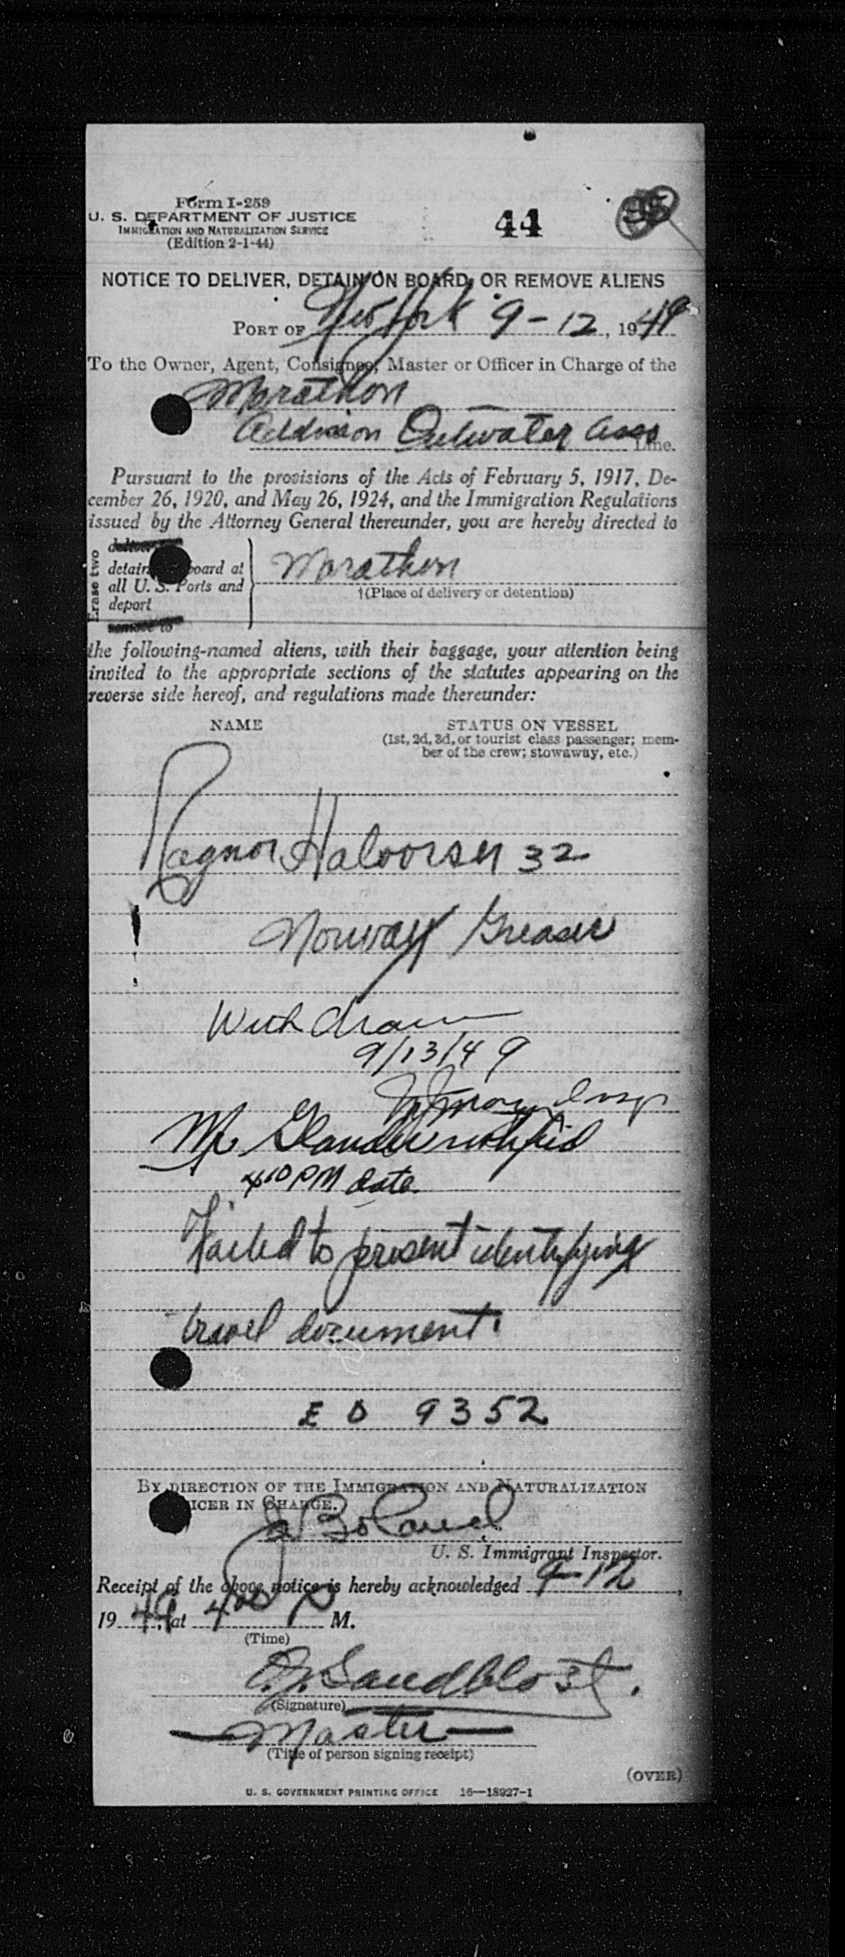 Form I-259
U. S. DEPARTMENT OF JUSTICE
IMMIGRATION AND NATURALIZATION SERVICE
(Edition 2-1-44)
44
NOTICE TO DELIVER, DETAIN ON BOARD, OR REMOVE ALIENS
PORT OF New York 9-12, 1949
To the Owner, Agent, Consignee, Master or Officer in Charge of the
Marathon
Outwater Line.
Pursuant to the provisions of the Acts of February 5, 1917, De-
cember 26, 1920, and May 26, 1924, and the Immigration Regulations
issued by the Attorney General thereunder, you are hereby directed to
Erase two
detain board at
all U. S. Ports and
deport
remove to
Marathon
†(Place of delivery or detention)
the following-named aliens, with their baggage, your attention being
invited to the appropriate sections of the statutes appearing on the
reverse side hereof, and regulations made thereunder:
NAME STATUS ON VESSEL
(1st, 2d, 3d, or tourist class passenger; mem-
ber of the crew; stowaway, etc.)
Ragnor Halvorsen 32
Norway Greaser
Withdrawn
9/13/49
Insp
Mr notified
410 PM date
Failed to present identifying
travel document.
E D 9352
BY DIRECTION OF THE IMMIGRATION AND NATURALIZATION
ICER IN CHARGE.
Boland
U. S. Immigrant Inspector.
Receipt of the above notice is hereby acknowledged 9-12,
1949, at 400 P M.
(Time)
Sandblost.
(Signature)
Master
(Title of person signing receipt)
(OVER)
U. S. GOVERNMENT PRINTING OFFICE 16—18927-1